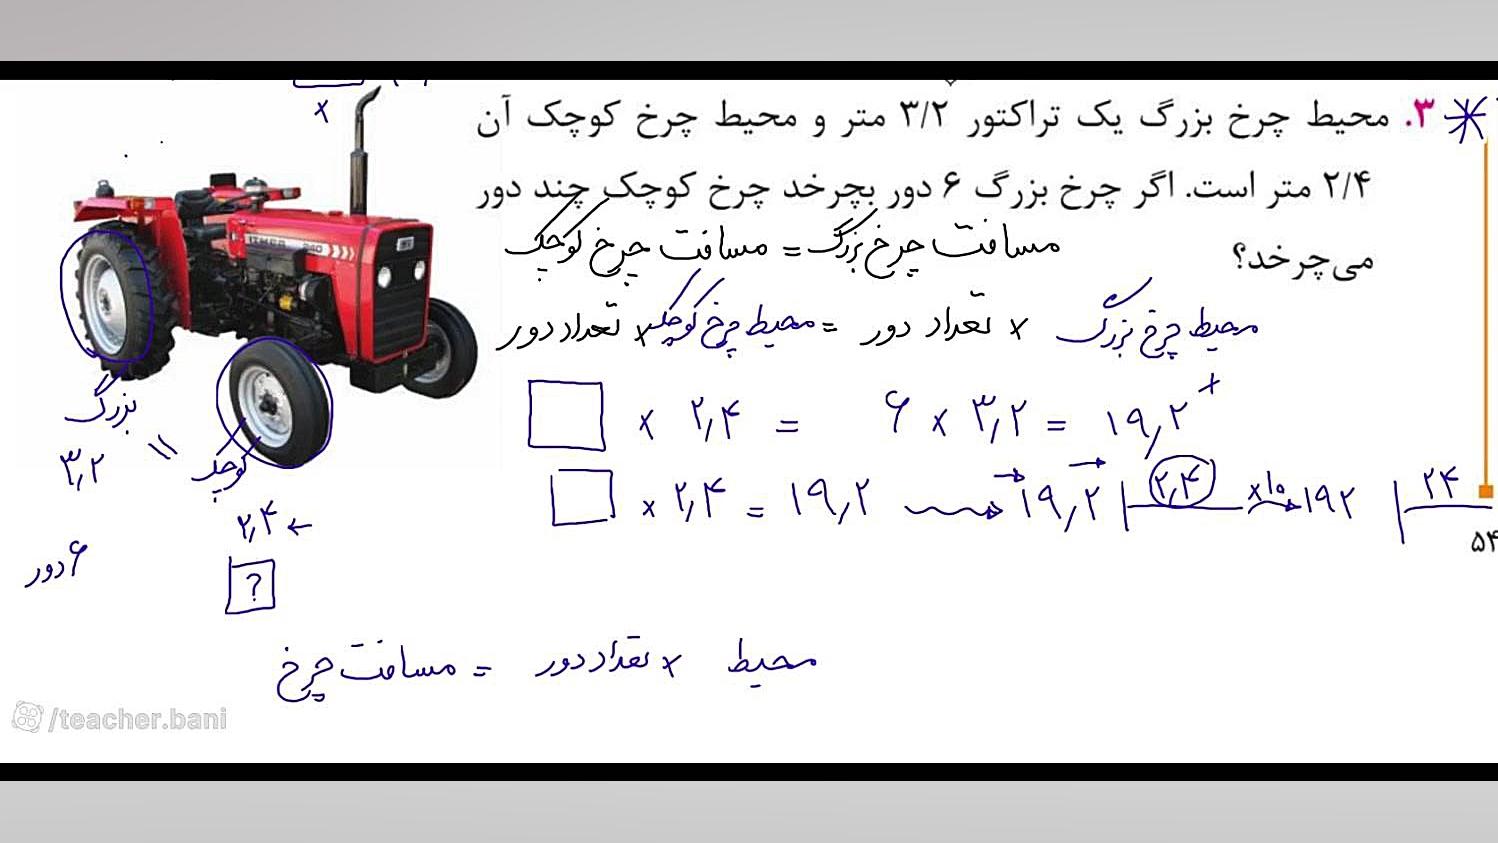 ۳. محیط چرخ بزرگ یک تراکتور ۳/۲ متر و محیط چرخ کوچک آن
۲/۴ متر است. اگر چرخ بزرگ ۶ دور بچرخد چرخ کوچک چند دور
می‌چرخد؟
مسافت چرخ بزرگ = مسافت چرخ کوچک
محیط چرخ بزرگ × تعداد دور = محیط چرخ کوچک × تعداد دور
□ × ۲,۴ = ۶ × ۳,۲ = ۱۹,۲
□ × ۲,۴ = ۱۹,۲ → ۱۹,۲ | ۲,۴ ×۱۰ → ۱۹۲ | ۲۴
۵۴
بزرگ = کوچک
۳,۲
۲,۴ ←
۶ دور
?
محیط × تعداد دور = مسافت چرخ
ITMCO 240
/teacher.bani